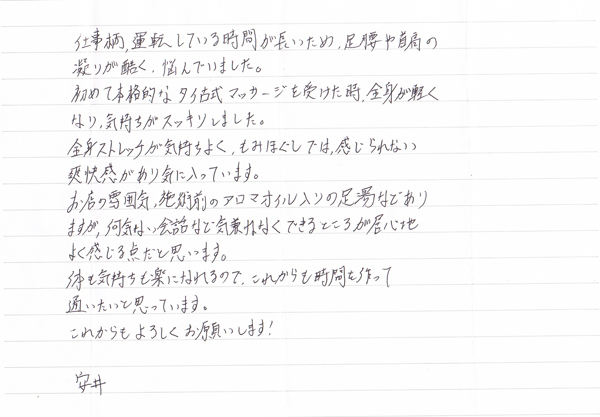 仕事柄,運転している時間が長いため,足腰や首肩の
凝りが酷く,悩んでいました。
初めて本格的なタイ古式マッサージを受けた時,全身が軽く
なり,気持ちがスッキリしました。
全身ストレッチが気持ちよく,もみほぐしでは,感じられない
爽快感があり気に入っています。
お店の雰囲気,施術前のアロマオイル入りの足湯などあり
ますが,何気ない会話など気兼ねなくできるところが居心地
よく感じる点だと思います。
体も気持ちも楽になれるので,これからも時間を作って
通いたいと思っています。
これからもよろしくお願いします!
安井